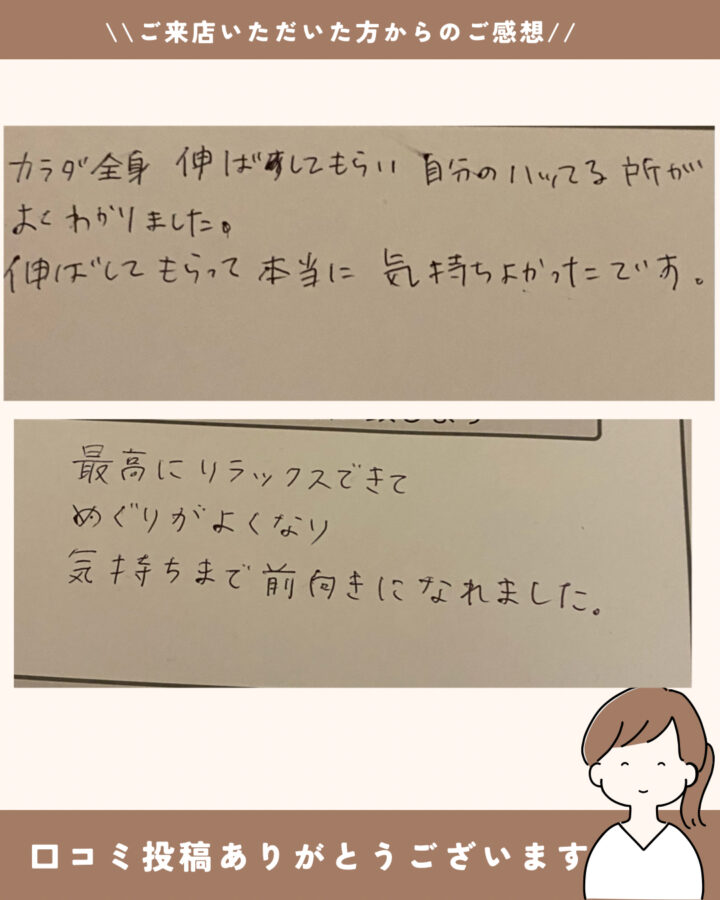 \\ご来店いただいた方からのご感想//
カラダ全身 伸ばしてもらい 自分のハッてる所が
よくわかりました。
伸ばしてもらって 本当に 気持ちよかったです。
最高にリラックスできて
めぐりがよくなり
気持ちまで前向きになれました。
口コミ投稿ありがとうございます